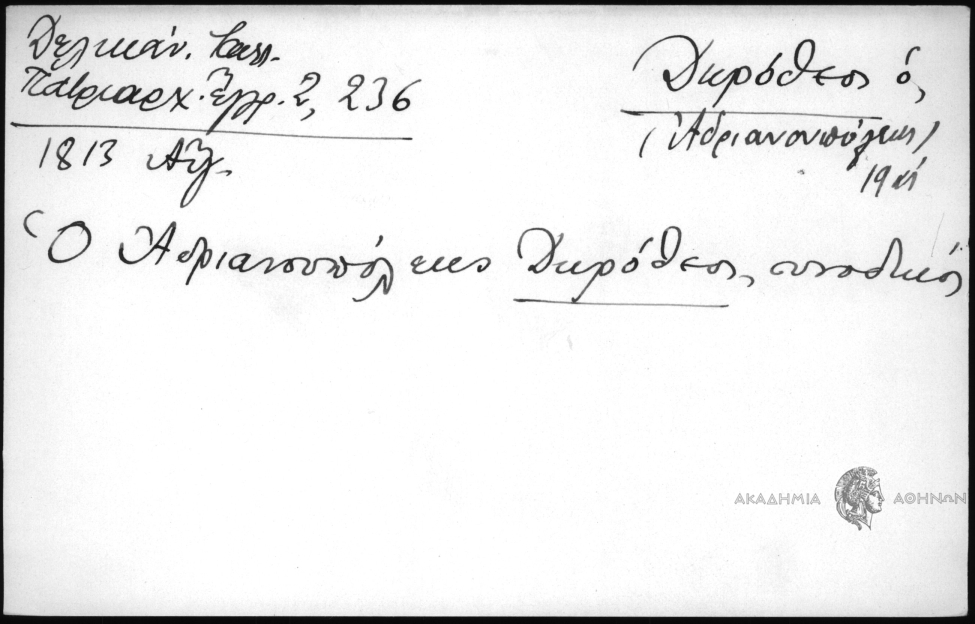 Δελικάν. Καλλ.
Πατριαρχ. Ἔγγρ. 2, 236
1813 Αὔγ.
Δωρόθεος ὁ,
(Ἀδριανουπόλεως)
19
Ὁ Ἀδριανουπόλεως Δωρόθεος, συνοδικός
ΑΚΑΔΗΜΙΑ ΑΘΗΝΩΝ